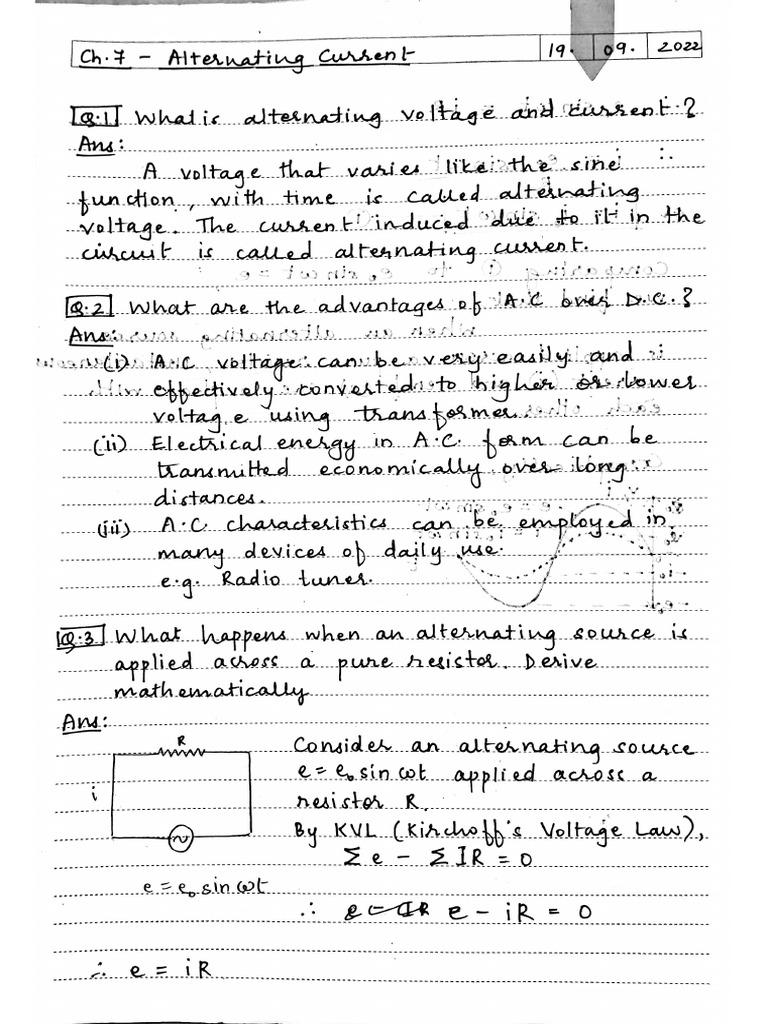 Ch.7 - Alternating Current 19. 09. 2022
Q.1 What is alternating voltage and current?
Ans:
A voltage that varies like the sine
function, with time is called alternating
voltage. The current induced due to it in the
circuit is called alternating current.
Q.2 What are the advantages of A.C over D.C.?
Ans:
(i) A.C voltage can be very easily and
effectively converted to higher or lower
voltage using transformer.
(ii) Electrical energy in A.C. form can be
transmitted economically over long
distances.
(iii) A.C characteristics can be employed in
many devices of daily use.
e.g. Radio tuner.
Q.3 What happens when an alternating source is
applied across a pure resistor. Derive
mathematically
Ans:
R
i
e = e₀ sin ωt
Consider an alternating source
e = e₀ sin ωt applied across a
resistor R.
By KVL (Kirchoff's Voltage Law),
Σ e - Σ IR = 0
∴ e - iR = 0
∴ e = iR